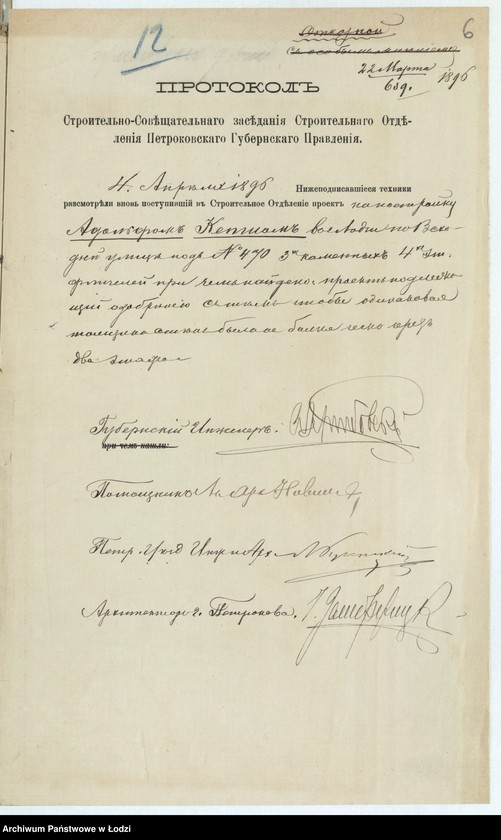 12
6
22 Марта 1896
639.
ПРОТОКОЛЪ
Строительно-Совѣщательнаго засѣданія Строительнаго Отдѣ-
ленія Петроковскаго Губернскаго Правленія.
4. Апрѣля 1896 Нижеподписавшіеся техники
разсмотрѣли вновь поступившій въ Строительное Отдѣленіе проектъ на постройку
Адольфомъ въ Лодзи по Всхо-
дней улицѣ подъ № 470 3хъ каменныхъ 4хъ эт.
флигелей при чемъ найдено, проектъ подлежа-
щій одобренію съ тѣмъ чтобы одинаковая
толщина стѣнъ была не болѣе чемъ чрезъ
два этажа
Губернскій Инженеръ.
при чемъ нашли:
Помощникъ
Петр. Инж и Арх
Архитекторъ г. Петрокова.
Archiwum Państwowe w Łodzi